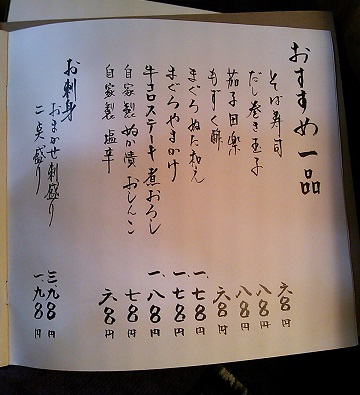 おすすめ一品
そば寿司 六〇〇円
だし巻き玉子 八〇〇円
茄子田楽 八〇〇円
もずく酢 六〇〇円
まぐろぬた和え 一、七〇〇円
まぐろやまかけ 一、七〇〇円
牛コロステーキ煮おろし 一、八〇〇円
自家製ぬか漬おしんこ 七〇〇円
自家製塩辛 六〇〇円
お刺身
おまかせ刺盛り 三、九〇〇円
二点盛り 一、九〇〇円